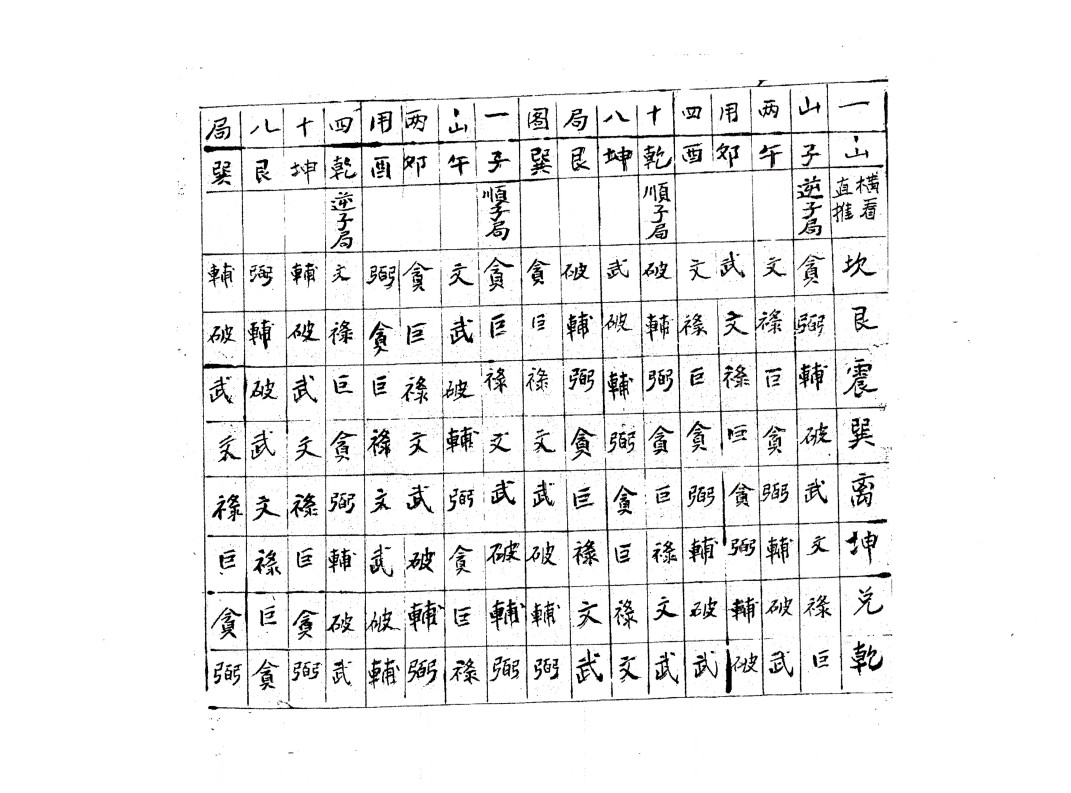 一 山 两 用 四 十 八 局 图 一 山 两 用 四 十 八 局
山 子 午 卯 酉 乾 坤 艮 巽 子 午 卯 酉 乾 坤 艮 巽
橫看
直推
逆子局
順子局
順子局
逆子局
坎 貪 文 武 文 破 武 破 貪 貪 文 貪 弼 文 輔 弼 輔
艮 弼 祿 文 祿 輔 破 輔 巨 巨 武 巨 貪 祿 破 輔 破
震 輔 巨 祿 巨 弼 輔 弼 祿 祿 破 祿 巨 巨 武 破 武
巽 破 貪 巨 貪 貪 弼 貪 文 文 輔 文 祿 貪 文 武 文
离 武 弼 貪 弼 巨 貪 巨 武 武 弼 武 文 弼 祿 文 祿
坤 文 輔 弼 輔 祿 巨 祿 破 破 貪 破 武 輔 巨 祿 巨
兑 祿 破 輔 破 文 祿 文 輔 輔 巨 輔 破 破 貪 巨 貪
乾 巨 武 破 武 武 文 武 弼 弼 祿 弼 輔 武 弼 貪 弼